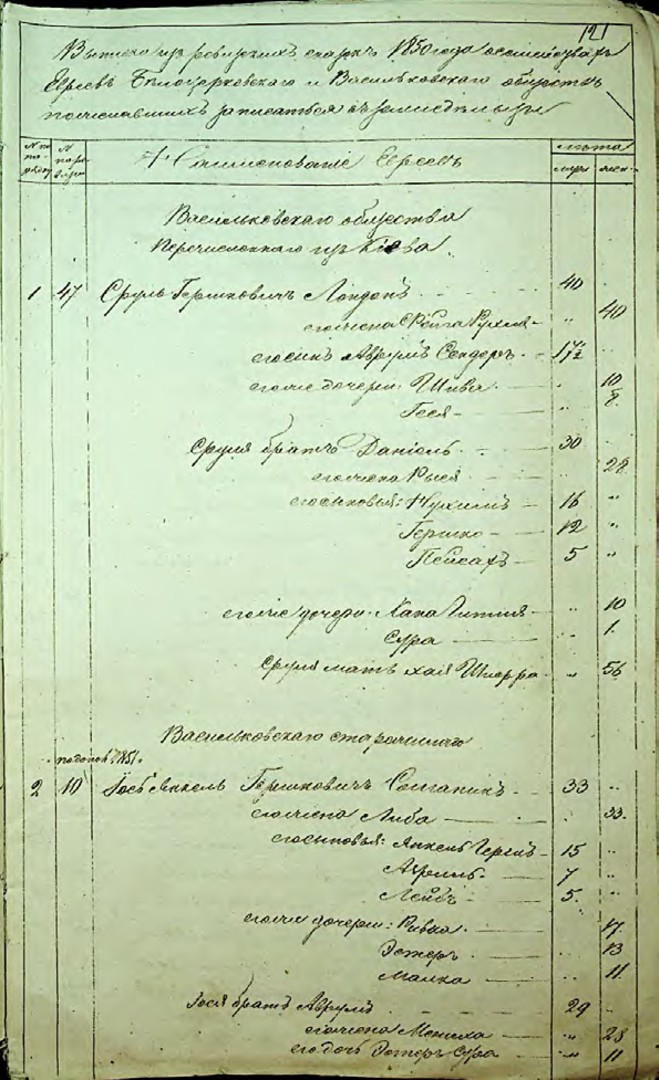 121
Выписка изъ ревизскихъ сказокъ 1850 года о семействахъ
Евреевъ Белоцерковскаго и Васильковскаго обществъ
пожелавшихъ записаться въ земледельцы
N по порядку N по ревизіи Наименованіе Евреевъ лѣта
муж. жен.
Васильковскаго общества
Перечисленнаго изъ Кіева
1 47 Сруль Гершковичъ Лондонъ 40
его жена Рухля 40
его сынъ Аврумъ Сендеръ 17½
его же дочери: Шива 10
Геся 8
Сруля братъ Даніель 30
его жена Рыся 28
его сыновья: Нухимъ 16 "
Гершко 12 "
Пейсахъ 5 "
его же дочери: Хана Гитля " 10
Сура 1
Сруля мать Хая " 56
Васильковскаго
1851
2 10 Гершковичъ 33 "
его жена Либа 33
его сыновья: Янкель 15 "
7 "
Лейбъ 5 "
его же дочери: Ривка 17
Эстеръ 13
Малка 11
Іося братъ Аврумъ 29
его жена " 28
его дочь Эстеръ Сура " 11